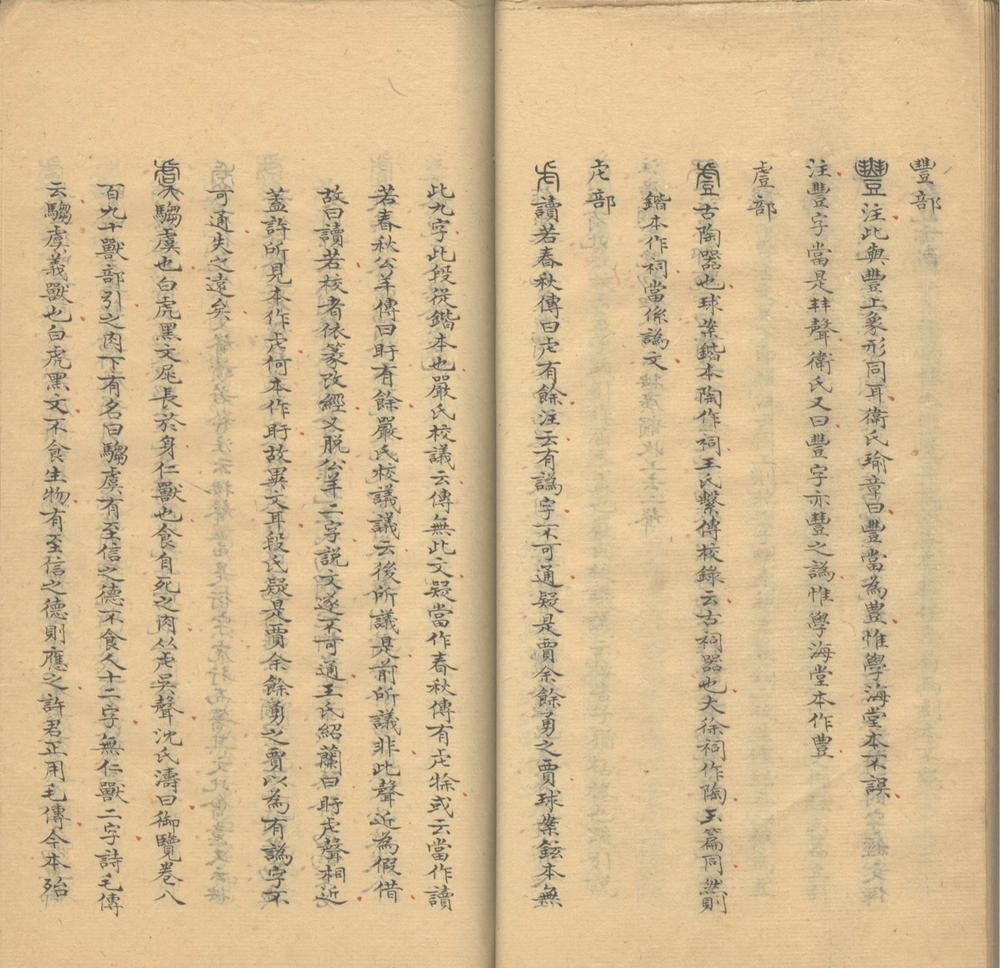 豐部
豐注此與豐上象形同耳衛氏瑜章曰豐當為豊惟學海堂本不誤
注豐字當是丰丰聲衛氏又曰豐字亦豐之譌惟學海堂本作豊
䖒部
䖒古陶器也球案鍇本陶作祠王氏繫傳校錄云古祠器也大徐祠作陶玉篇同然則
鍇本作祠當係譌文
虍部
虍讀若春秋傳曰虍有餘注云有譌字不可通疑是賈余餘勇之賈球案鉉本無
此九字此段從鍇本也嚴氏校議云傳無此文疑當作春秋傳有虍猌或云當作讀
若春秋公羊傳曰盱有餘嚴氏校議議云後所議是前所議非此聲近為假借
故曰讀若校者依篆改經又脫公羊二字說文遂不可通王氏紹蘭曰盱虍聲相近
蓋許所見本作虍何本作盱故異文耳段氏疑是賈余餘勇之賈以為有譌字不
可通失之遠矣
虞騶虞也白虎黑文尾長於身仁獸也食自死之肉从虍吳聲沈氏濤曰御覽卷八
百九十獸部引之肉下有名曰騶虞有至信之德不食人十二字無仁獸二字詩毛傳
云騶虞義獸也白虎黑文不食生物有至信之德則應之許君正用毛傳今本殆